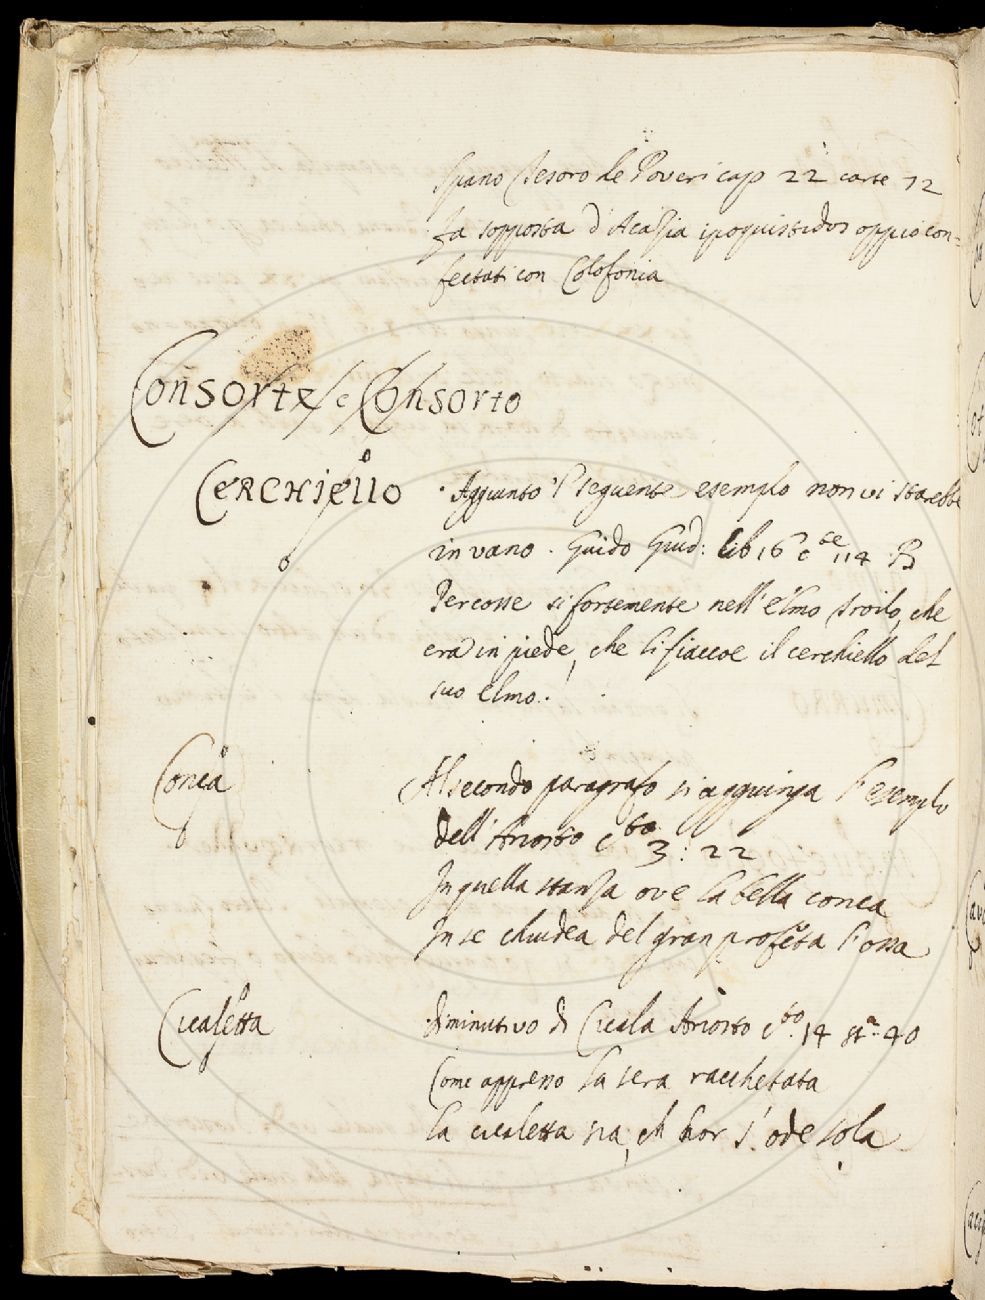 spano Tesoro de Poveri cap 22 carte 12
fa sopposta d'Acazia ipoquistidos oppio con=
fettati con Colofonia
Consorte, e Consorto
CERCHIELLO
· Aggiunto 'l seguente esempio non vi starebbe
in vano. Guido Giud: lib 16 cte 114 · B
Percosse sì fortemente nell'elmo Troilo, che
era in piede, che li fiaccoe il cerchiello del
suo elmo.
Conca
Al secondo paragrafo si aggiunga l'esempio
dell'Ariosto cto 3: 22
In quella stanza ove la bella conca
In se chiudea del gran profeta l'ossa
Cicaletta
diminutivo di Cicala Ariosto cto 14 sta 40
Come appresso la sera racchetata
la cicaletta sia, ch hor s'ode sola